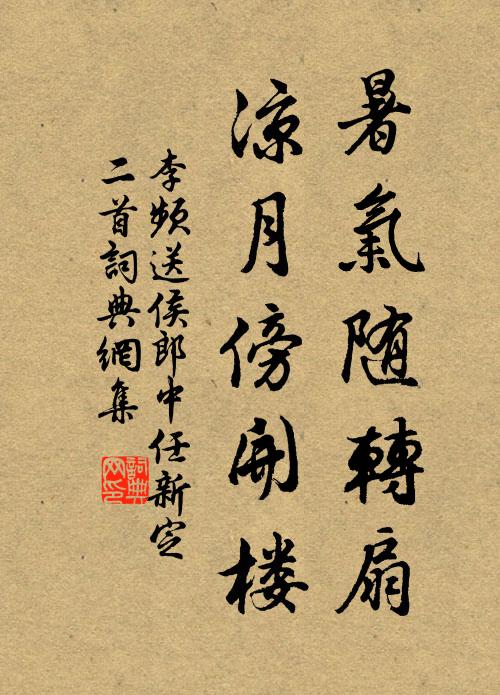 暑氣随轉扇
涼月傍開楼
李频送侯郎中任新定
二首詞典網集
詞典网印